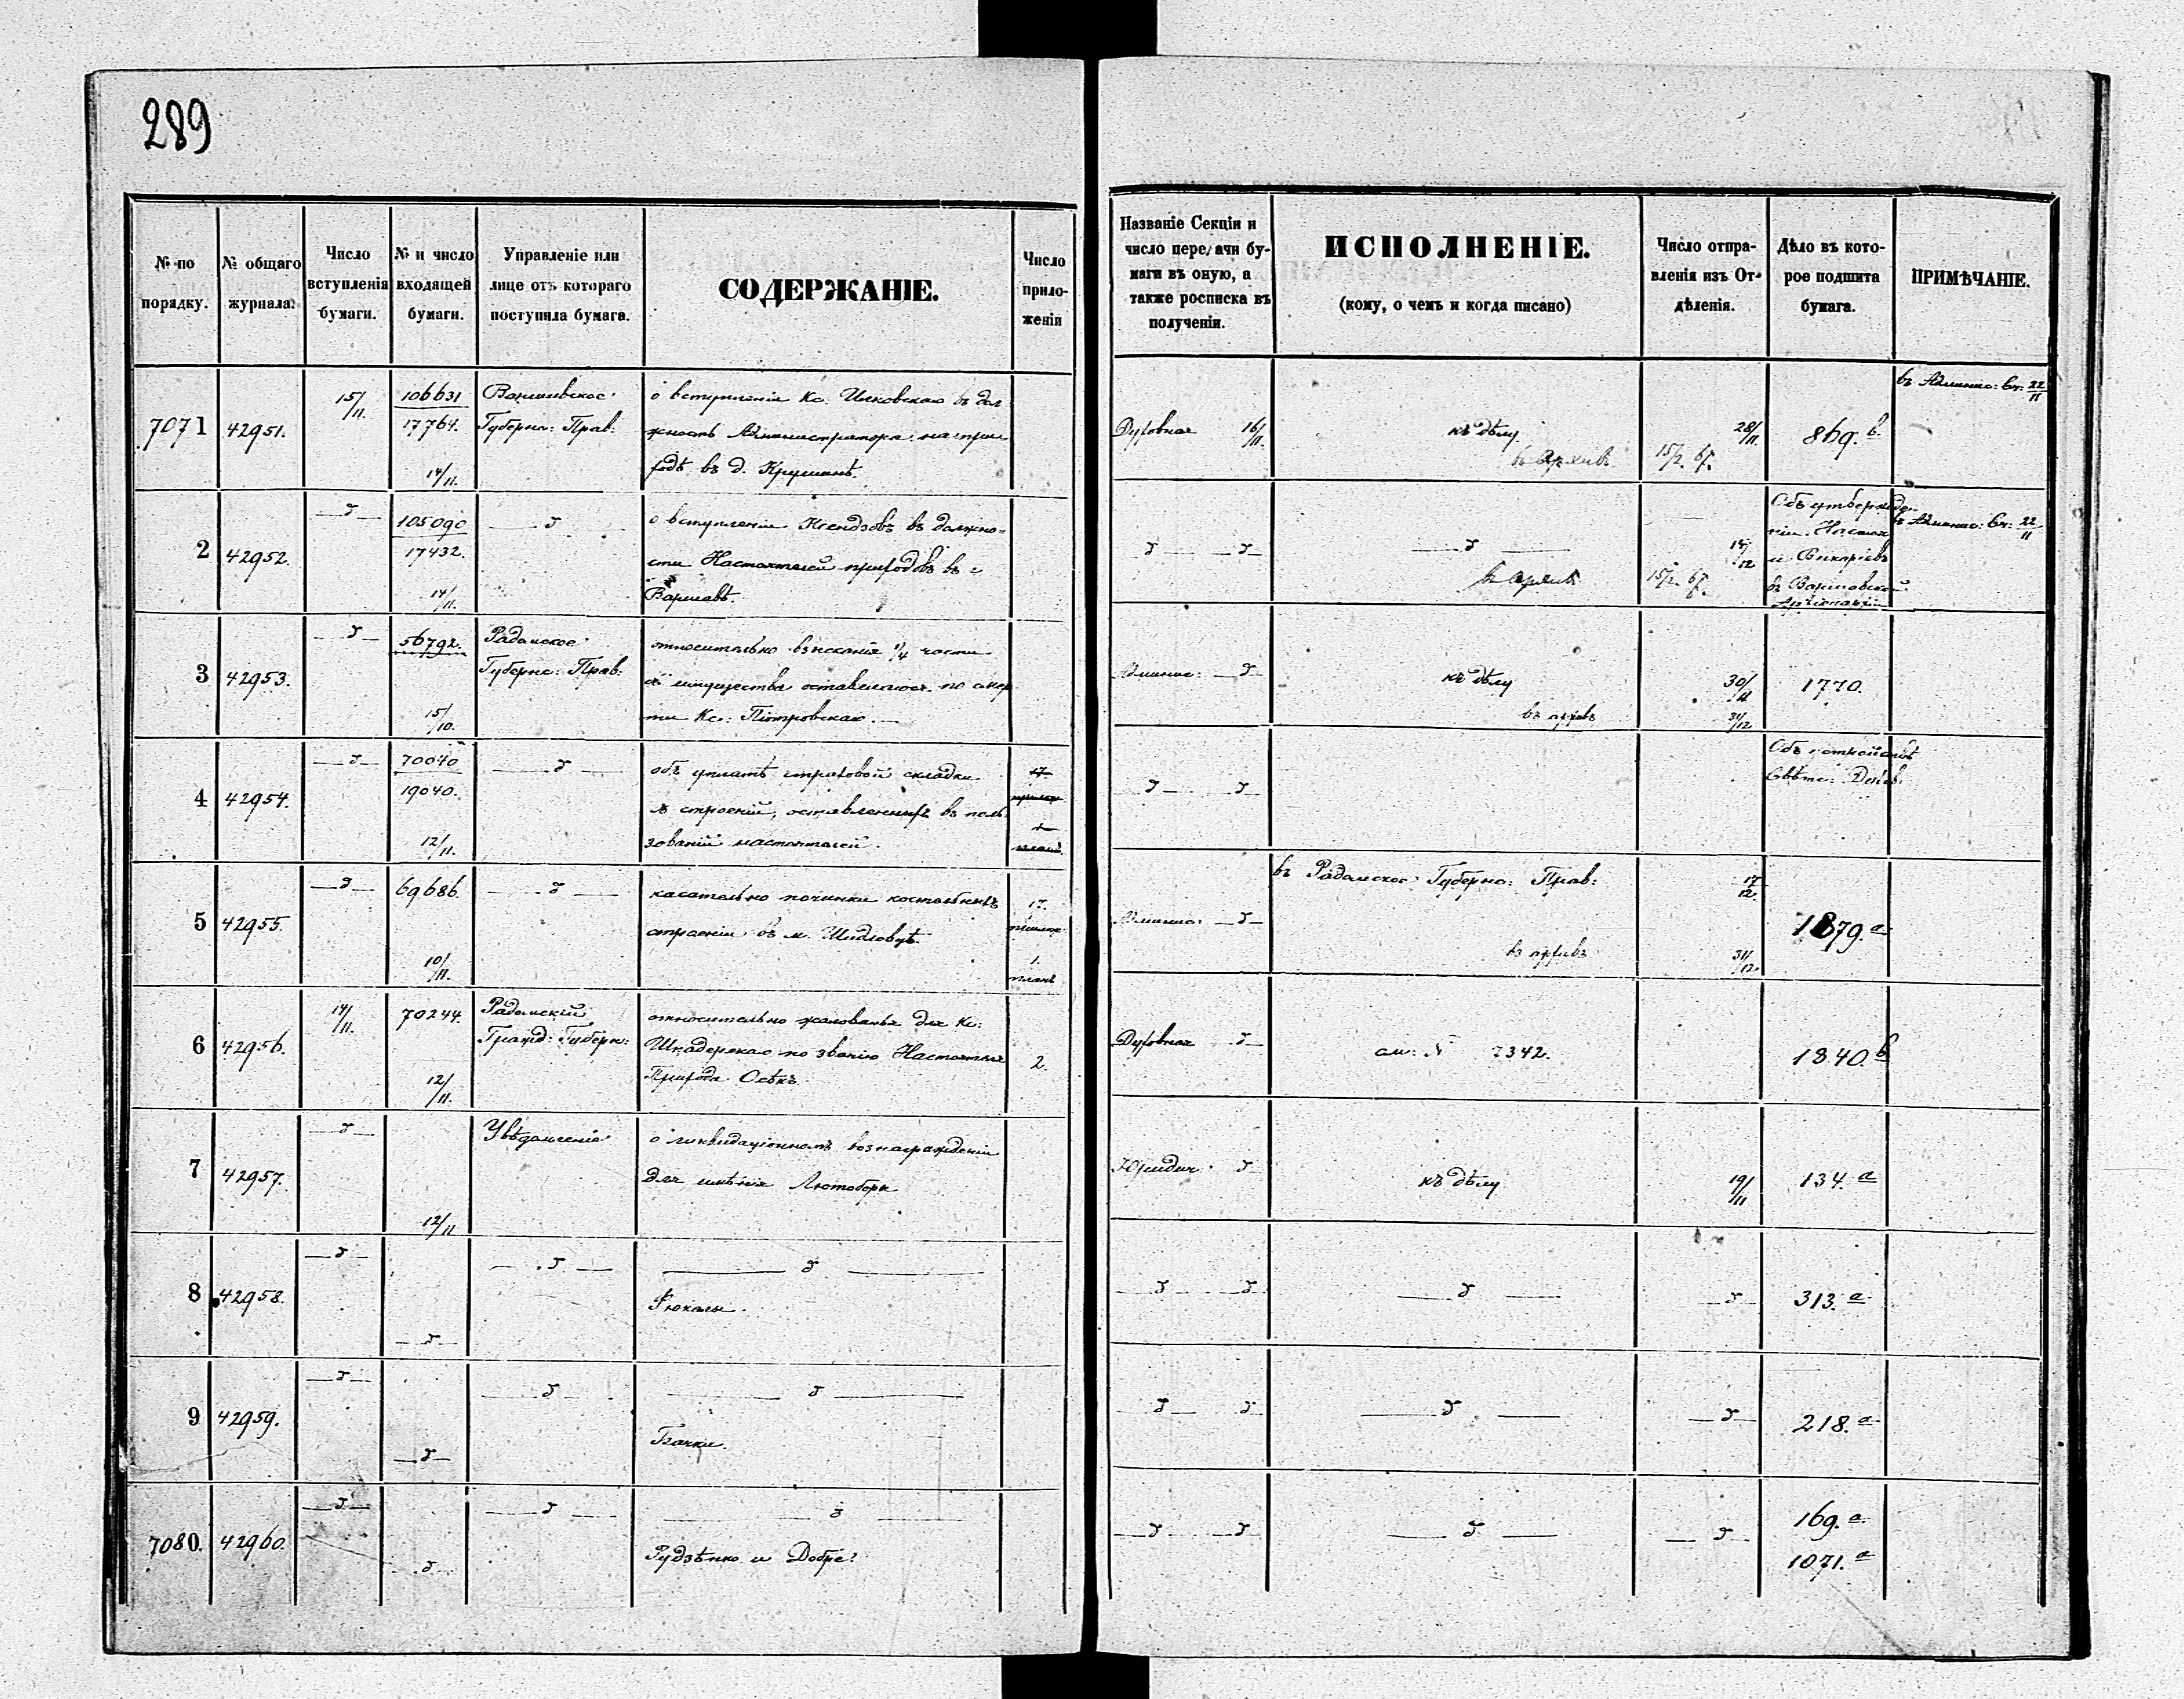 289
№ по
порядку.
№ общаго
журнала.
Число
вступленія
бумаги.
№ и число
входящей
бумаги.
Управленіе или
лице отъ котораго
поступила бумага.
СОДЕРЖАНІЕ.
Число
прило-
женій
Названіе Секціи и
число передачи бу-
маги въ оную, а
также росписка въ
полученіи.
ИСПОЛНЕНІЕ.
(кому, о чемъ и когда писано)
Число отпра-
вленія изъ От-
дѣленія.
Дѣло въ кото-
рое подшита
бумага.
ПРИМѢЧАНІЕ.
7071
42951.
15/11.
106631
17764.
14/11.
Варшавское
Губерн: Прав:
о вступленіи Кс. въ дол
жность Администратора на при
ходѣ въ д.
Духовная 16/11.
къ дѣлу.
въ Архивъ
28/11.
15/2. 67.
869. b.
въ Админис: Вч: 22/11
2
42952.
105090
17432.
14/11.
о вступленіи Ксендзовъ въ должно-
сти Настоятелей приходовъ въ г
Варшавѣ.
въ Архивъ
14/12
15/2. 67.
Объ утвержде-
ніи Настоят
и Викаріевъ
въ Варшавской
въ Админис: Вч: 22/11
3
42953.
56792.
15/10.
Радомское
Губерн: Прав:
относительно взысканія 1/4 части
имущества оставшагося по смер
ти Кс: Піотровскаго.
Админис:
къ дѣлу
въ архивъ
30/11
31/12
1770.
4
42954.
70040
19040.
12/11.
объ уплатѣ страховой складки
съ строеній, оставленныхъ въ поль
зованіи настоятелей.
17
прилож
1
планъ
Объ устройствѣ
Свѣтс: Духов:
5
42955.
69686.
10/11.
касательно починки костельныхъ
строеній въ м. Шидловцѣ.
17.
прилож:
1.
планъ
Админис:
въ Радомское Губерн: Прав:
въ архивъ
17/12.
31/12.
1879. a
6
42956.
14/11.
70244.
12/11.
Радомскій
Гражд: Губерн:
относительно жалованья для Кс:
по званію Настоятеля
Прихода Осѣкъ
2.
Духовная
см: № 7342.
1840. b
7
42957.
12/11
Увѣдомленіе
о ликвидаціонномъ вознагражденіи
для имѣнія Лютоборы
Юридич.
къ дѣлу
19/11
134. a
8
42958.
313. a
9
42959.
Бачки.
218. a
7080.
42960.
Рудзѣнко и Добре.
169. a
1071. a